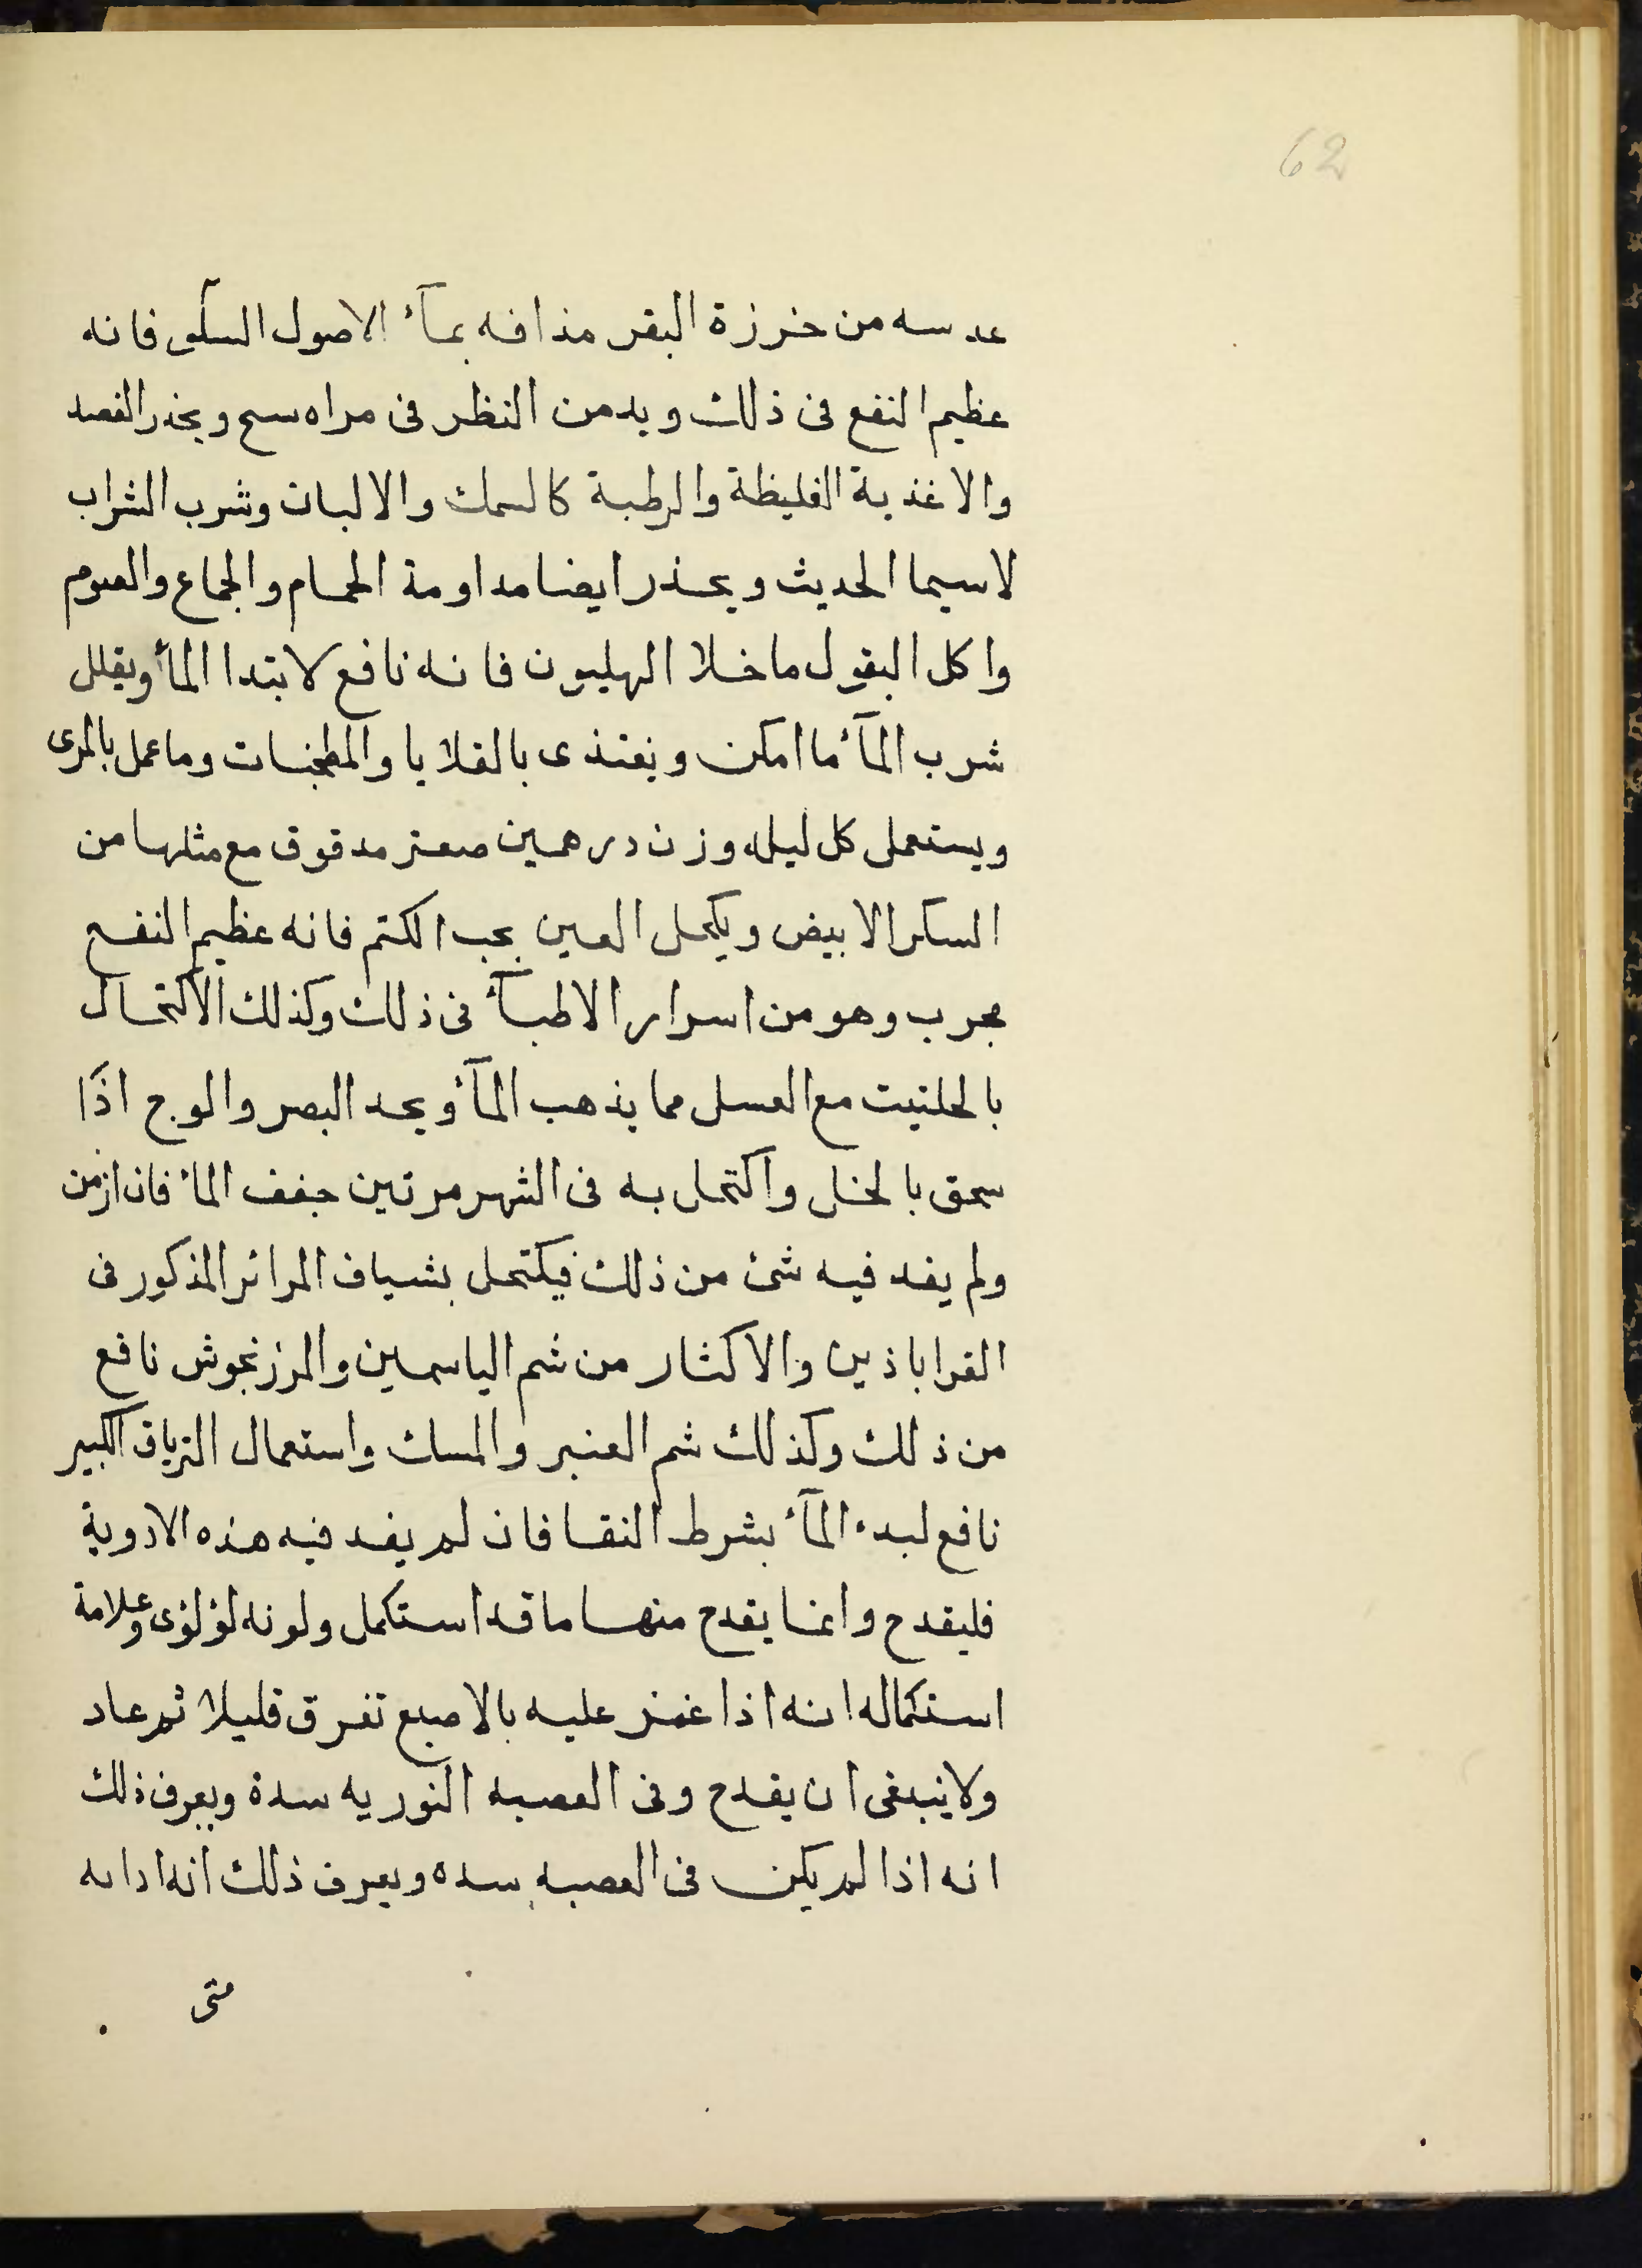 62
عدسه من خرزة البقر مذافه بمآء الاصول السكرى فانه
عظيم النفع فى ذلك ويدمن النظر فى مراه سبج ويحذر الفصد
والاغذية الغليظة والرطبة كالسمك والالبان وشرب الشراب
لاسيما الحديث ويحذر ايضا مداومة الحمام والجماع والصوم
واكل البقول ماخلا الهليون فانه نافع لابتدا المأ ويقلل
شرب المآء ما امكن ويغتذى بالقلايا والمطجنات وما عمل بالمرى
ويستعمل كل ليله وزن درهمين صعتر مدقوق مع مثلها من
السكر الابيض ويكحل العين بحب الكتم فانه عظيم النفع
مجرب وهو من اسرار الاطبآء فى ذلك وكذلك الاكتحال
بالحلتيت مع العسل مما يذهب المآء ويحد البصر والوج اذا
سحق بالخل واكتحل به فى الشهر مرتين جفف الماء فان ازمن
ولم يفد فيه شئ من ذلك فيكتحل بشياف المرائر المذكور فى
القراباذين والاكثار من شم الياسمين والمرزنجوش نافع
من ذلك وكذلك شم العنبر والمسك واستعمال الترياق الكبير
نافع لبدء المآء بشرط النقا فان لم يفد فيه هذه الادوية
فليقدح وانما يقدح منها ما قد استكمل ولونه لؤلؤى وعلامة
استكماله انه اذا غمز عليه بالاصبع تفرق قليلا ثم عاد
ولاينبغى ان يقدح وفى العصبه النوريه سدة ويعرف ذلك
انه اذا لم يكن فى العصبه سده ويعرف ذلك انه ادا
متى